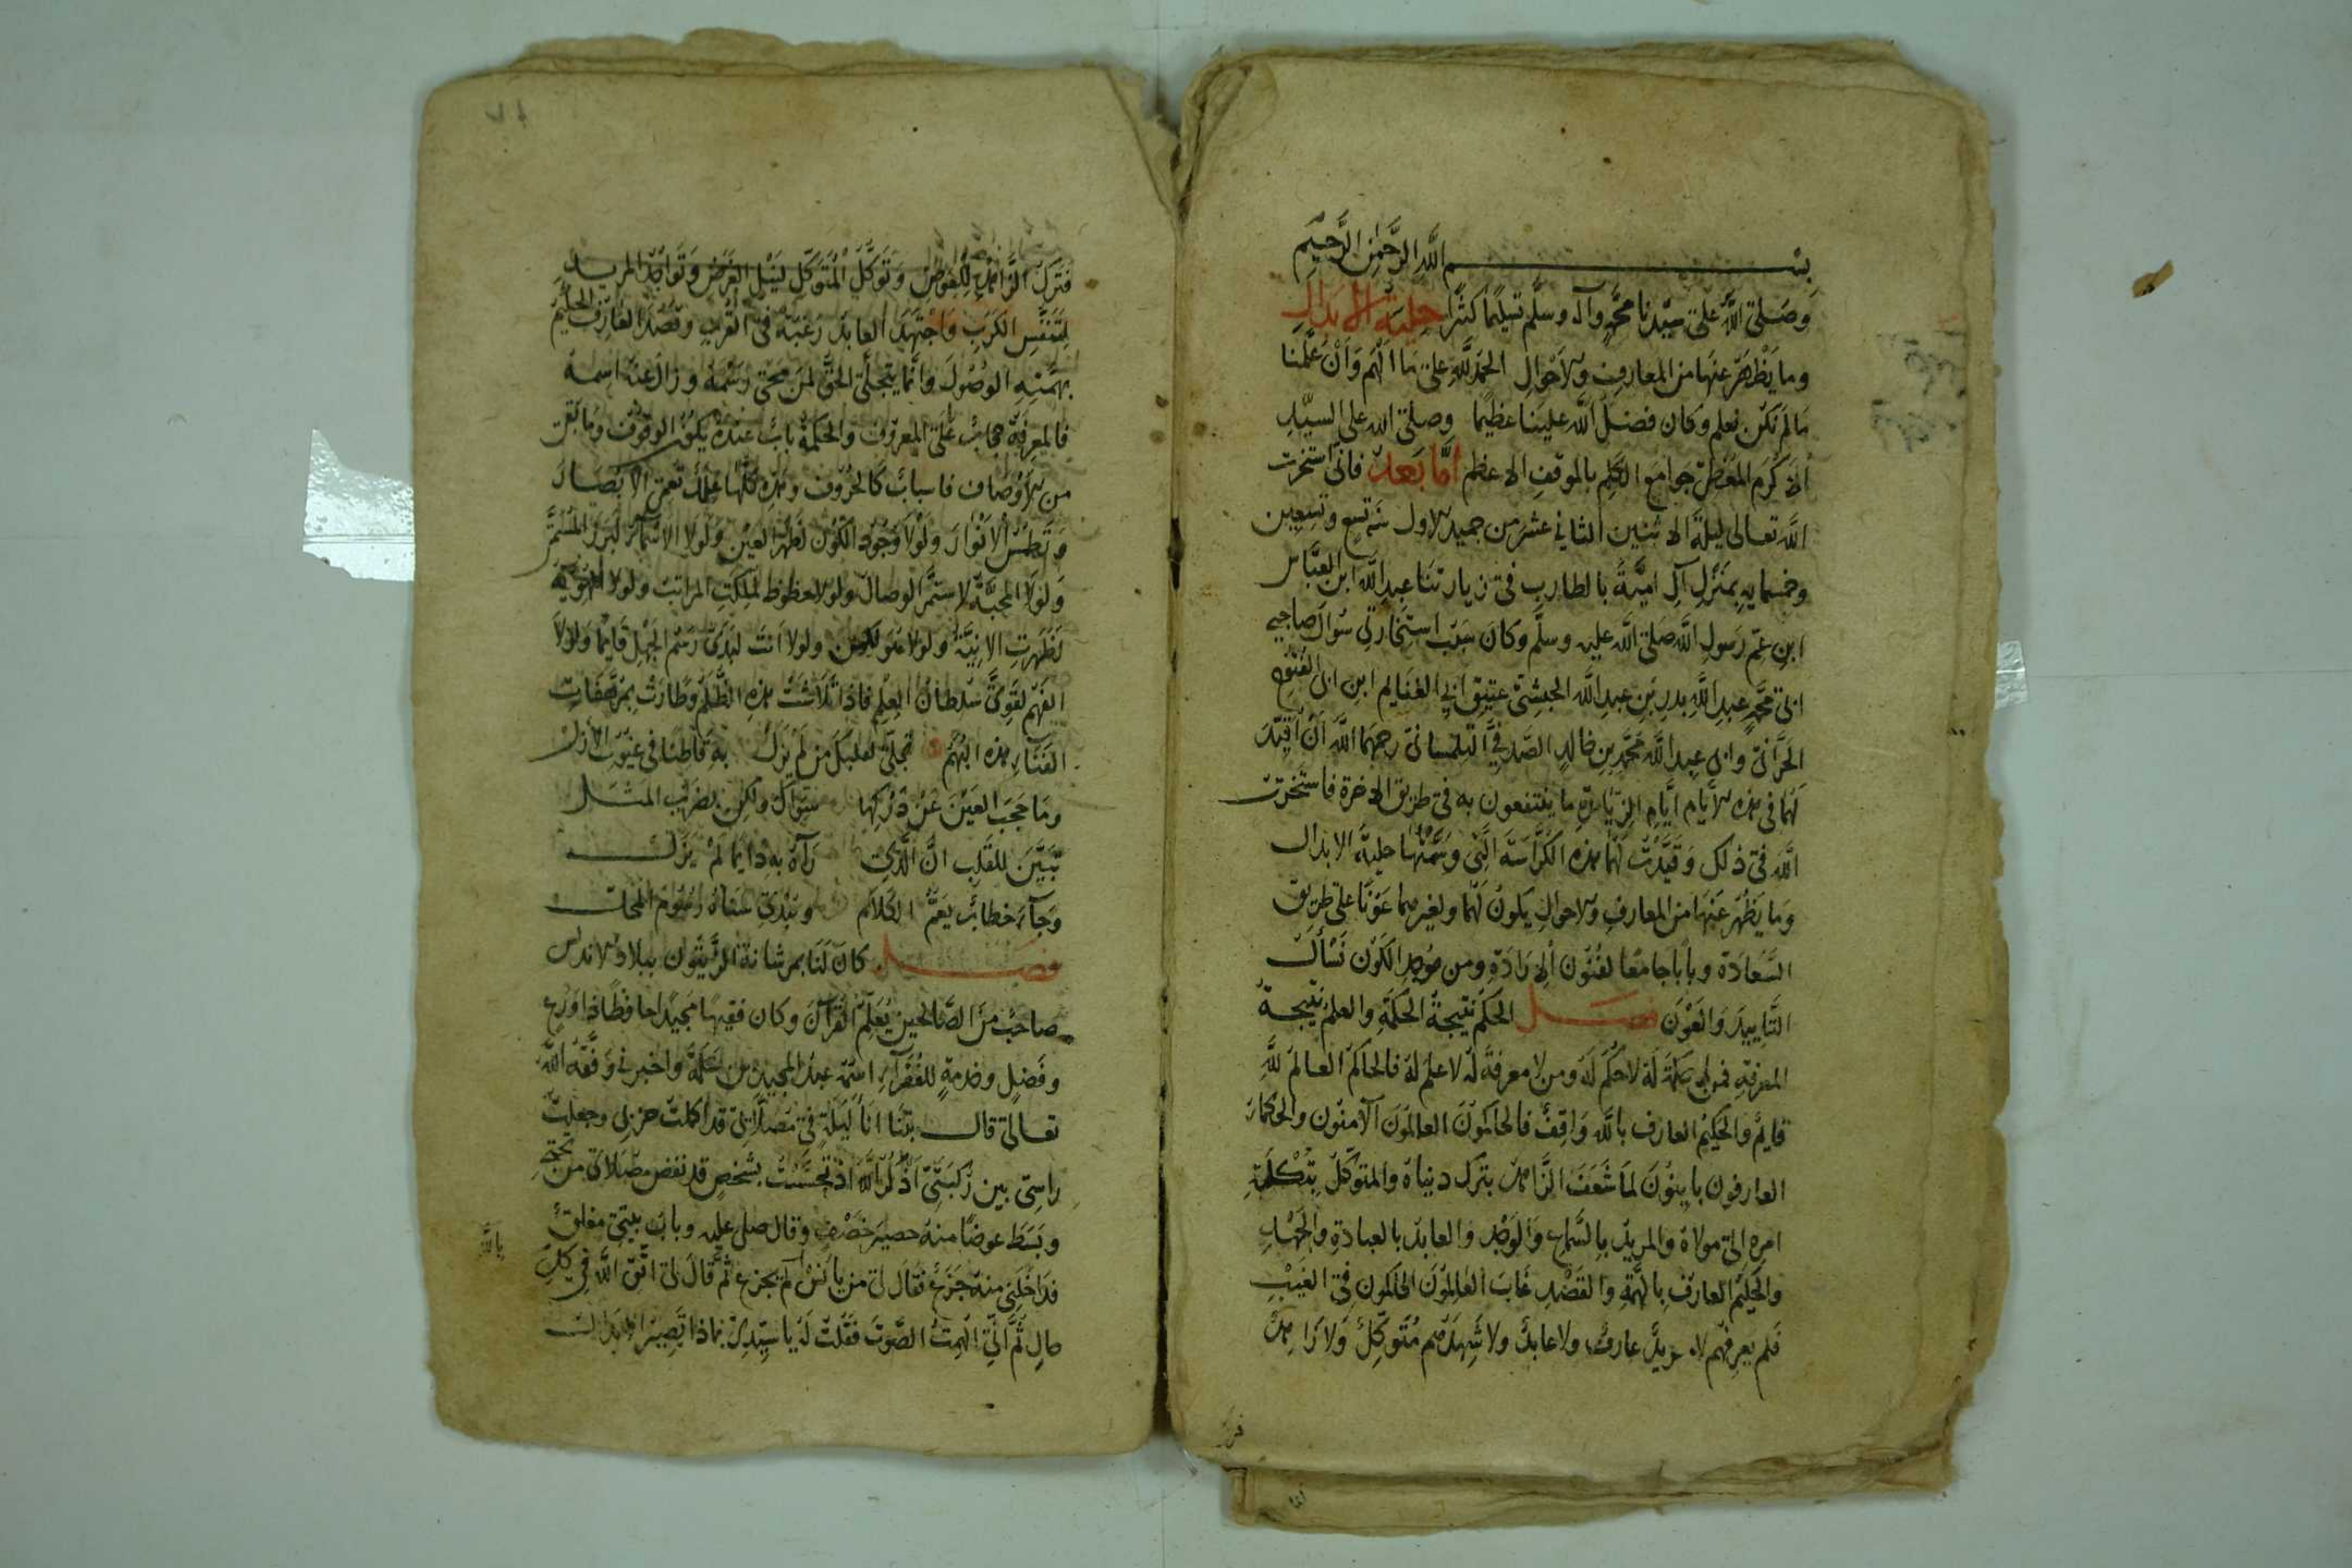 بسم الله الرحمن الرحيم
وصلى الله على سيدنا محمد وآله وسلم تسليما كثيرا حلية الابدال
وما يظهر عنها من المعارف والاحوال الحمد لله على ما الهم وان علمنا
ما لم نكن نعلم وكان فضل الله علينا عظيما وصلى الله على السيد
الاكرم المعطى جوامع الكلم بالموقف الاعظم اما بعد فانى استخرت
الله تعالى ليلة الاثنين الثاني عشر من جميد الاول سنة تسع وتسعين
وخمسمايه بمنزل آل امية بالطايف فى زيارتنا عبد الله ابن العباس
ابن عم رسول الله صلى الله عليه وسلم وكان سبب استخارتي سوال صاحبي
ابى محمد عبد الله بدر بن عبد الله الحبشى عتيق ابي الغنايم ابن ابى الفتوح
الحرانى وابى عبد الله محمد بن خالد الصدفي التلمسانى رحمهما الله ان اقيد
لهما فى هذه الايام ايام الزيارة ما ينتفعون به فى طريق الاخرة فاستخرت
الله فى ذلك وقيدت لهما هذه الكراسة التى وسمتها حلية الابدال
وما يظهر عنها من المعارف والاحوال يكون لهما ولغيرهما عونا على طريق
السعادة وبابا جامعا لفنون الارادة ومن موجد الكون نسأل
التاييد والعون فصل الحكم نتيجة الحكمة والعلم نتيجة
المعرفة فمن لا حكمة له لا حكم له ومن لا معرفة له لا علم له فالحاكم العالم لله
قايم والحكيم العارف بالله واقف فالحاكمون العالمون لاميون والحكماء
العارفون باييون لما شغف الزاهد بترك دنياه والمتوكل بتكلة
امره الى مولاه والمريد بالسماع والوجد والعابد بالعبادة والجهد
والحكيم العارف بالهمة والقصد غاب العالمون الحاكمون فى الغيب
فلم يعرفهم لا مريد عارف ولا عابد ولا شهدهم متوكل ولا زاهد
فترك
فترك الزاهد للعوض وتوكل المتوكل لنيل الغرض وتواجد المريد
لتنفس الكرب واجتهد العابد رغبة فى القرب وقصد العارف الحكيم
بهمته الوصول وانما يتجلى الحق لمن محى رسمه وزال عنه اسمه
فالمعرفة حجاب على المعروف والحكمة باب عنده يكون الوقوف وما بقى
من الاوصاف فاسباب كالحروف وهذه كلها علل تعمى الابصار
وتطمس الانوار ولولا وجود الكون لظهر العين ولولا الاسماء لبرز المسمى
ولولا المحبة لاستمر الوصال ولولا الحظوظ لملكت المراتب ولولا الهوية
لظهرت الانية ولولا هو لكان ولولا انت لبدى رسم الجهل قايما ولولا
الفهم لقوى سلطان العلم فاذا تلاشت هذه الظلم وطارت بمرهفات
الفناء هذه البهم تجلى لقلبك من لم يزل به قاطنا فى غيوب الازل
وما حجب العين عن دركها سواك ولكن بضرب المثل
تبين للقلب ان الذى رآه به دايما لم يزل
وجاء خطاب يعم الكلام ويبدى سناه رسوم المحل
فصل كان لنا بمرشانة الزيتون ببلاد الاندلس
صاحب من الصالحين يعلم القرآن وكان فقيها مجيدا حافظا ذا ورع
وفضل وخدمة للفقراء اسمه عبد المجيد بن سلمة واخبرنى وفقه الله
تعالى قال بينا انا ليلة فى مصلاى قد اكملت حزبى وجعلت
راسى بين ركبتى اذكر الله اذ تحسست بشخص قد نفض مصلاى من تحتى
وبسط عوضا منه حصير خصف وقال صل عليه وباب بيتى مغلق
فداخلنى منه جزع فقال لى من يانس لم يجزع ثم قال لى اتق الله في كل
حال ثم انى الهمت الصوت فقلت له يا سيدى بماذا تصير الابدال
بالله